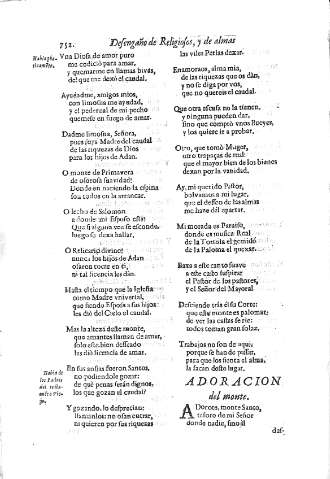 752. Desengaño de Religiosos, y de almas
Vna Diosa de amor puro
me codició para amar,
y quemarme en llamas bivas,
del que me dexó el caudal.
Ayudadme, amigos mios,
con limosna me ayudad,
y el pedernal de mi pecho
quemese en fuego de amar.
Dadme limosna, Señora,
pues soys Madre del caudal
de las riquezas de Dios
para los hijos de Adan.
O monte de Primavera
de olorosa suavidad!
Donde en naciendo la espina
son todos en la arrancar.
O lecho de Salomon
a donde mi Esposo está!
Que si alguna vez se esconde,
luego se dexa hallar.
O Relicario divino!
nunca los hijos de Adan
osaron tocar en ti,
ni tal licencia les dan.
Hasta el tiempo que la Iglesia
como Madre vniversal,
que siendo Esposa a sus hijos
les dió del Cielo el caudal.
Mas la alteza deste monte,
que amantes llaman de amar,
solo este bien desseado
les dió licencia de amar.
En sus ansias fueron Santos,
no pudiendole gozar:
de què penas serán dignos,
los que gozan el caudal?
Y gozando, lo desprecian:
llamandole no osan entrar,
ni quieren por sus riquezas
las viles Perlas dexar.
Enamoraos, alma mia,
de las riquezas que os dàn,
y no se diga por vos,
que no quereys el caudal.
Que otra escusa no la tienen,
y ninguna pueden dar,
sino que comprò vnos Bueyes,
y los quiere ir a probar.
Otro, que tomó Muger,
otro trapaças de mal:
que el mayor bien de los bienes
dexan por la vanidad.
Ay, mi querido Pastor,
bolvamos a mi lugar,
que el desseo de las almas
me have del apartar.
Mi morada es Paraiso,
donde es musica Real
de la Tortola el gemido
de la Paloma el quexar.
Baxe a este canto suave
a este caño suspire
el Pastor de los pastores,
y el Señor del Mayoral
Desciende tràs dèsa Corte:
que este monte es palomar:
de ver las casas se rie:
todos toman gran solaz.
Trabajos no son de aqui:
porque se han de passar,
para que los sienta el alma,
la sacan deste lugar.
ADORACION
del monte.
ADoroos, monte Santo,
tesoro de mi Señor
donde nadie, sino el
das-